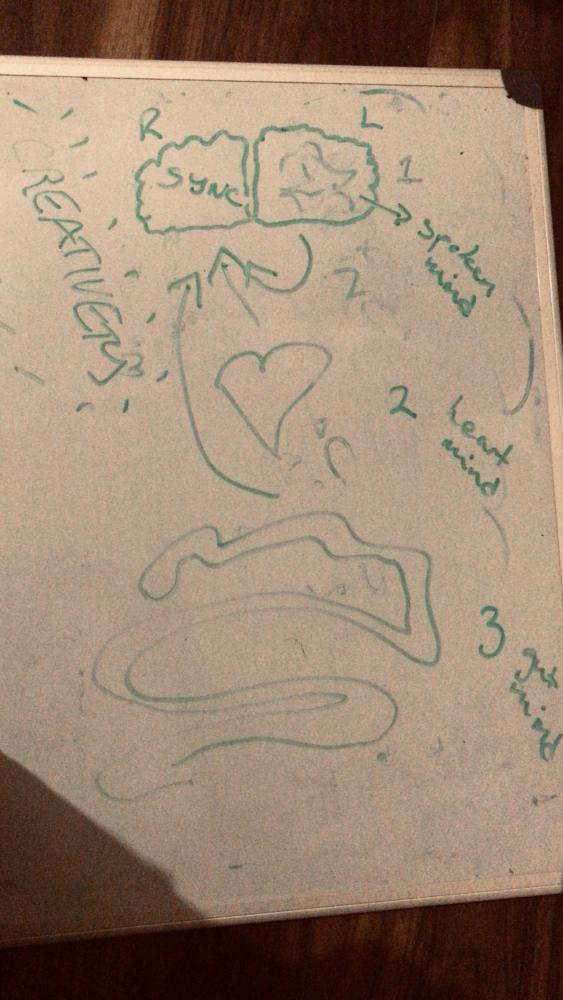 R
L
SYNC
1
spoken
mind
CREATIVERS
2
heart
mind
3
gut
mind